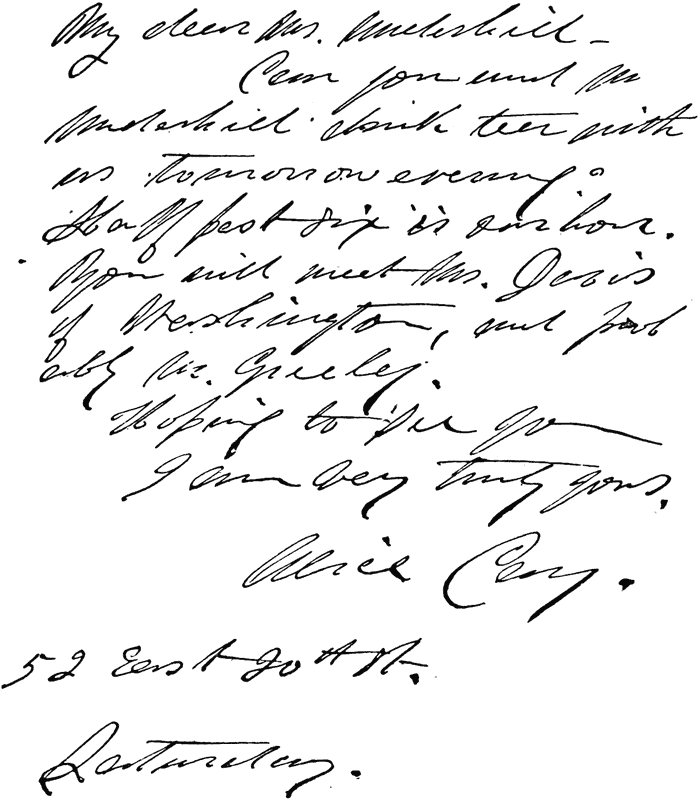 My dear Mrs. Underhill–
Can you and Mr
Underhill drink tea with
us tomorrow evening?
Half past six is our hour.
You will meet Mrs. Davis
of Washington, and prob
ably Mr. Greeley.
Hoping to see you
I am very truly yours,
Alice Cary.
52 East 20th St.
Saturday.